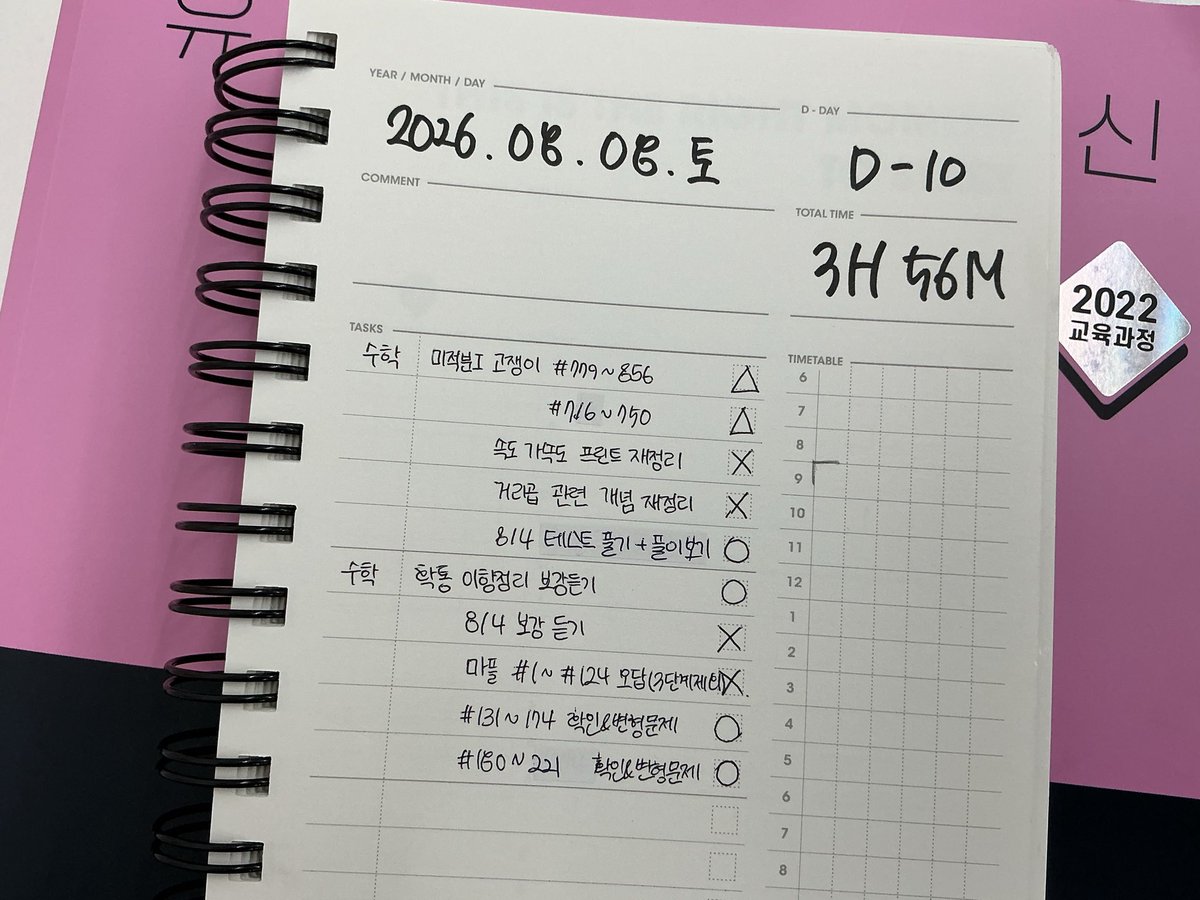 유
신
2022
교육과정
YEAR / MONTH / DAY
2026.08.08.토
D - DAY
D-10
COMMENT
TOTAL TIME
3H 56M
TASKS
수학 미적분I 고쟁이 #779~856 △
#716~750 △
속도 가속도 프린트 재정리 X
거리곱 관련 개념 재정리 X
8/4 테스트 풀기+풀이보기 O
수학 학통 이항정리 보강듣기 O
8/4 보강 듣기 X
마플 #1~#124 오답(3단계제외) X
#131~174 확인&변형문제 O
#180~221 확인&변형문제 O
TIMETABLE
6
7
8
9
10
11
12
1
2
3
4
5
6
7
8